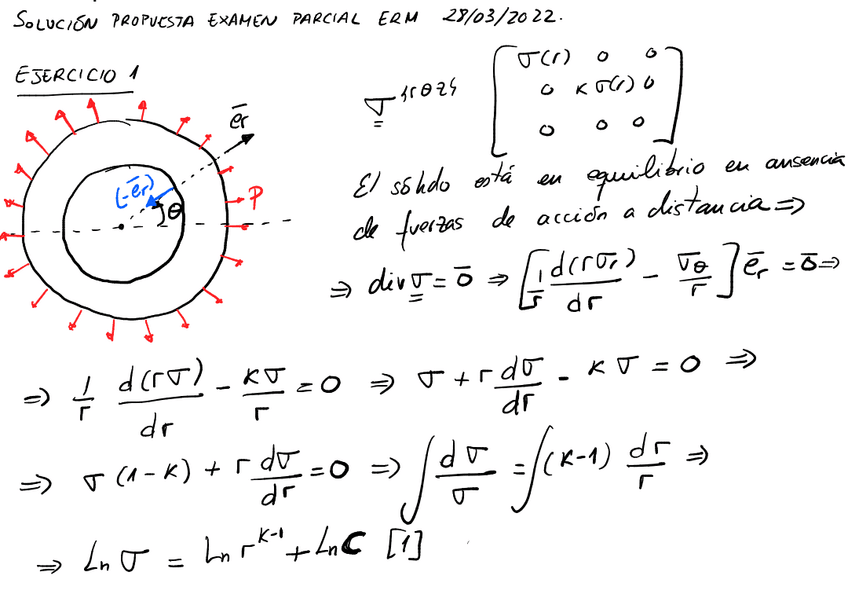 SOLUCIÓN PROPUESTA EXAMEN PARCIAL ERM 28/03/2022.
EJERCICIO 1
e̅r
(-e̅r)
θ
P
σ̳ {rθz} [σ(r) 0 0
0 κσ(r) 0
0 0 0]
El sólido está en equilibrio en ausencia
de fuerzas de acción a distancia ⇒
⇒ div σ̳ = 0̅ ⇒ [1/r d(rσr)/dr - σθ/r] e̅r = 0̅ ⇒
⇒ 1/r d(rσ)/dr - κσ/r = 0 ⇒ σ + r dσ/dr - κσ = 0 ⇒
⇒ σ(1-κ) + r dσ/dr = 0 ⇒ ∫ dσ/σ = ∫ (κ-1) dr/r ⇒
⇒ Ln σ = Ln r^(κ-1) + Ln C [1]